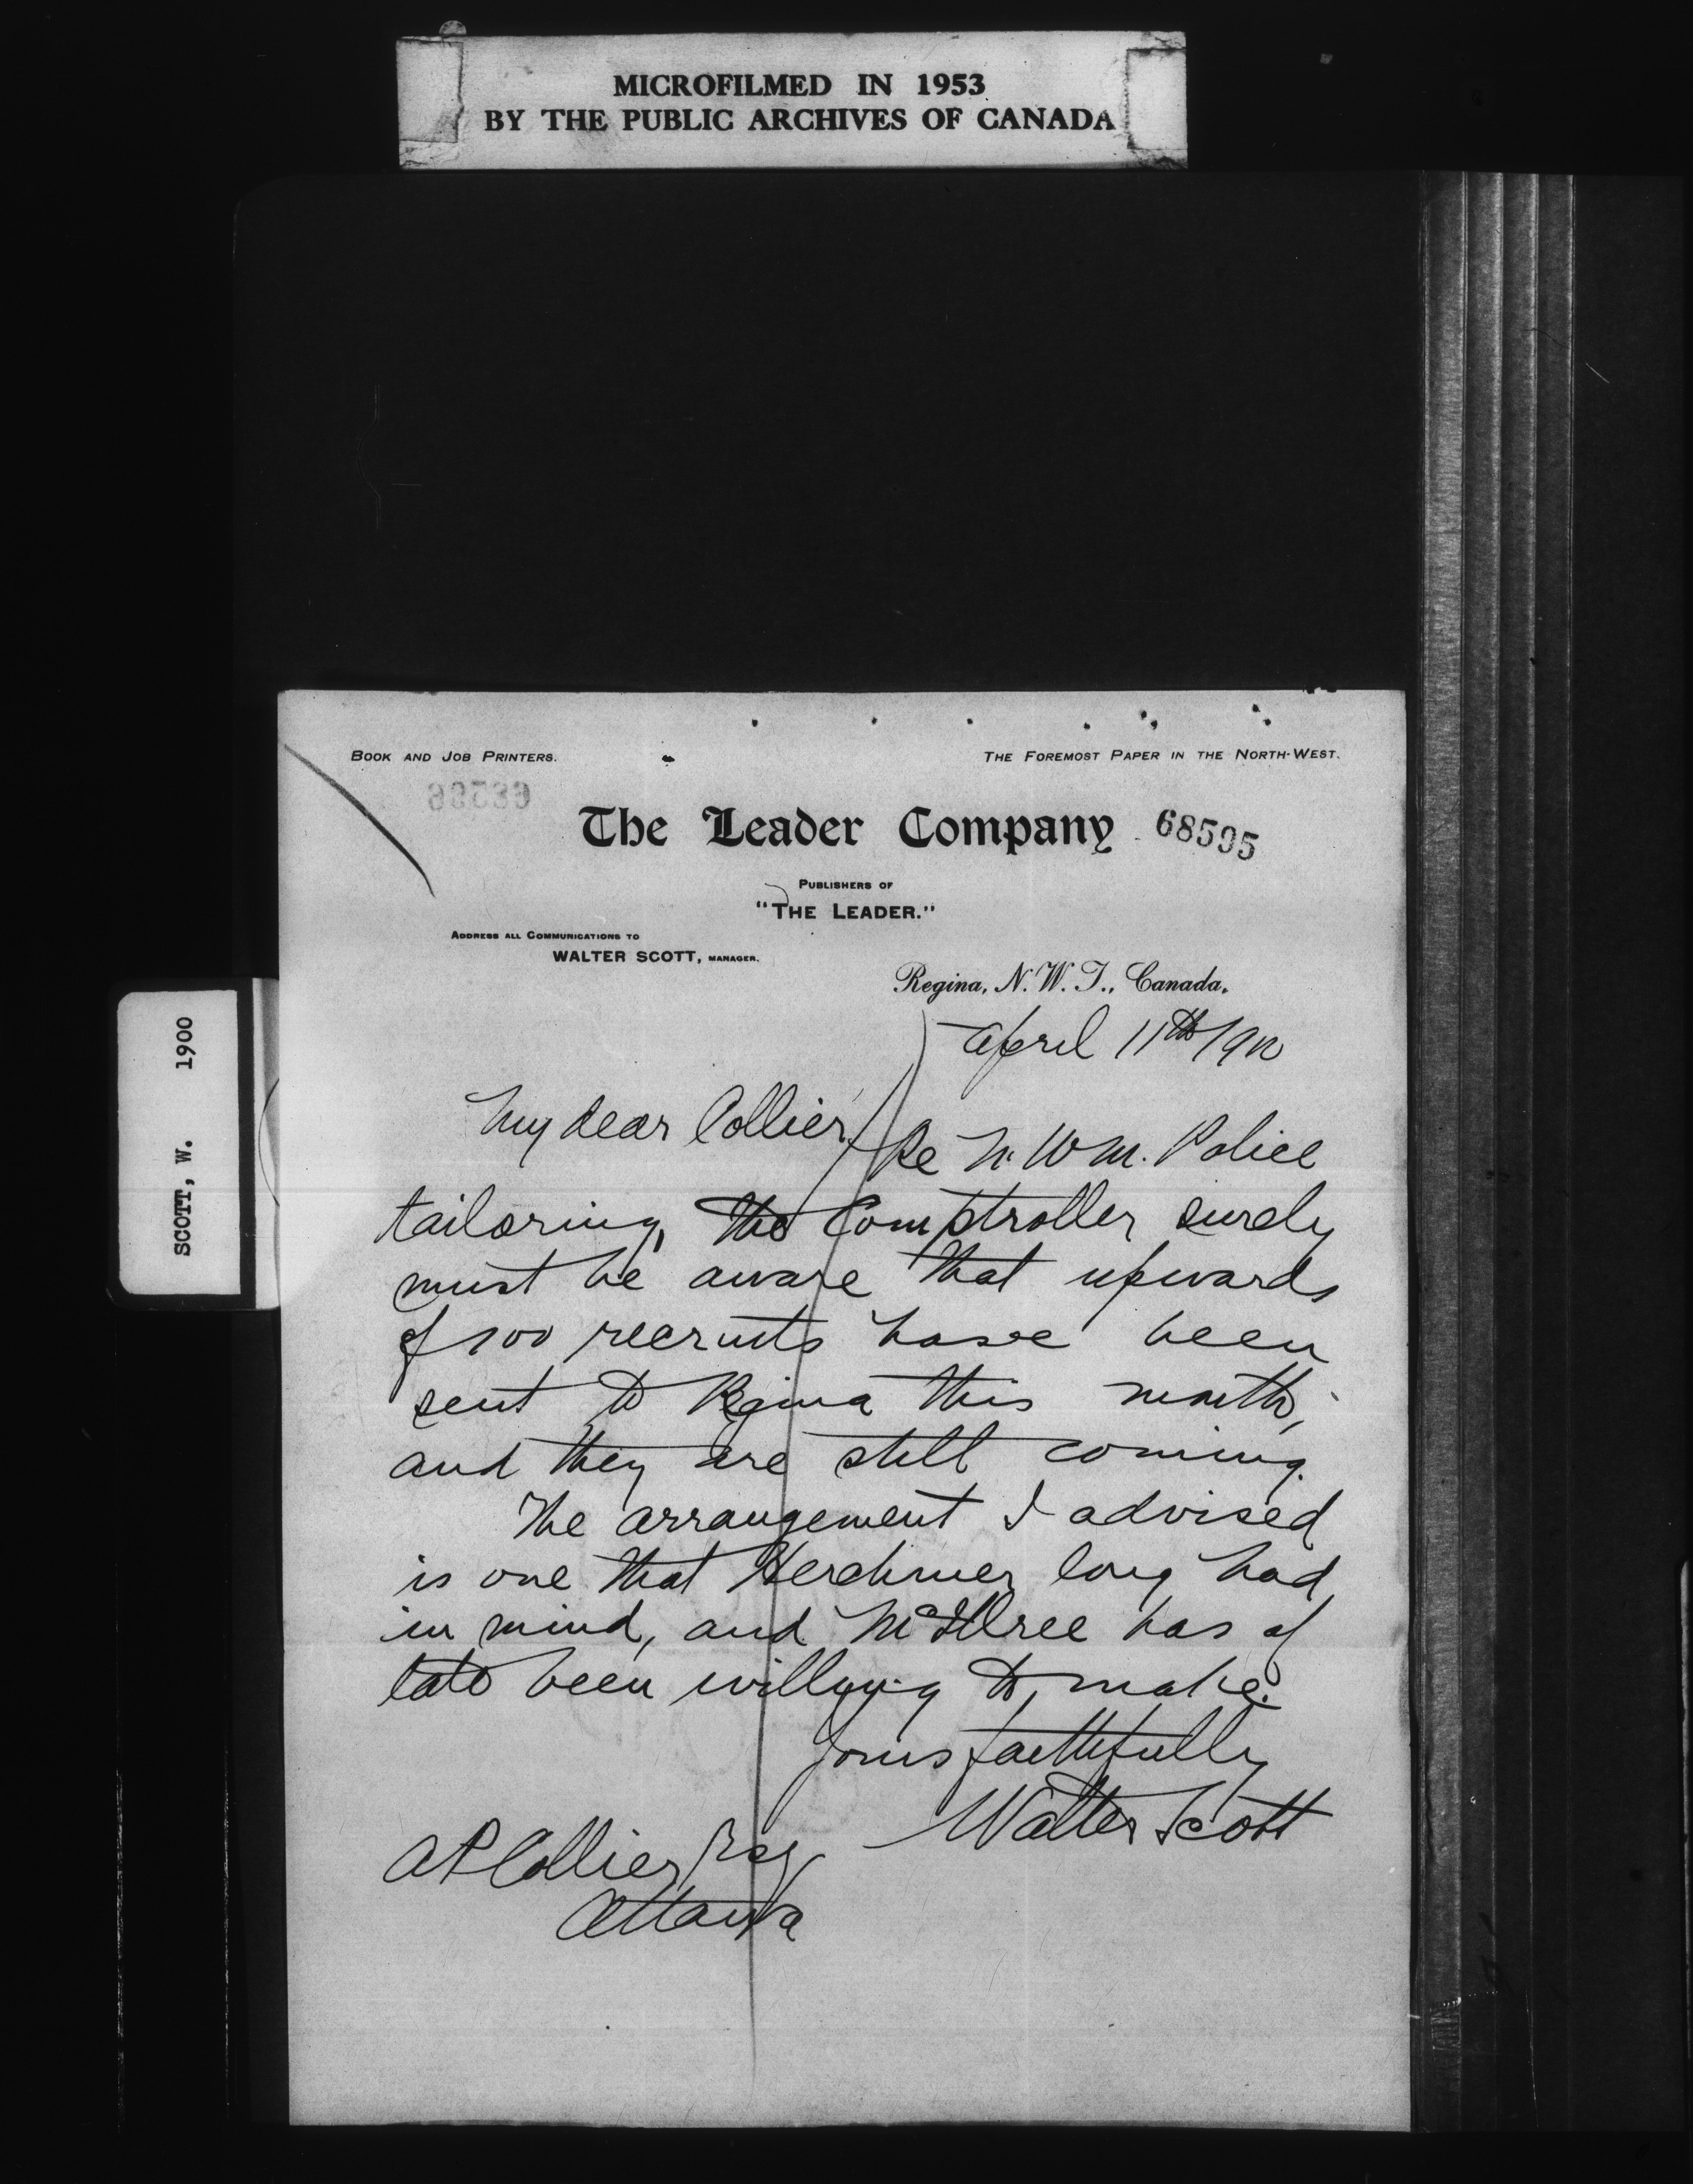 MICROFILMED IN 1953
BY THE PUBLIC ARCHIVES OF CANADA
SCOTT, W. 1900
BOOK AND JOB PRINTERS.
THE FOREMOST PAPER IN THE NORTH-WEST.
The Leader Company 68595
PUBLISHERS OF
"THE LEADER."
ADDRESS ALL COMMUNICATIONS TO
WALTER SCOTT, MANAGER.
Regina, N. W. T., Canada,
April 11th 1900
My dear Collier,
Re N. W M. Police
tailoring, the Comptroller surely
must be aware that upwards
of 100 recruits have been
sent to Regina this month,
and they are still coming.
The arrangement I advised
is one that Herchmer long had
in mind, and McIllree has of
late been willing to make.
Yours faithfully
Walter Scott
A P Collier Esq
Ottawa